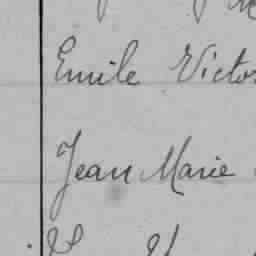 Emile Victor
Jean Marie